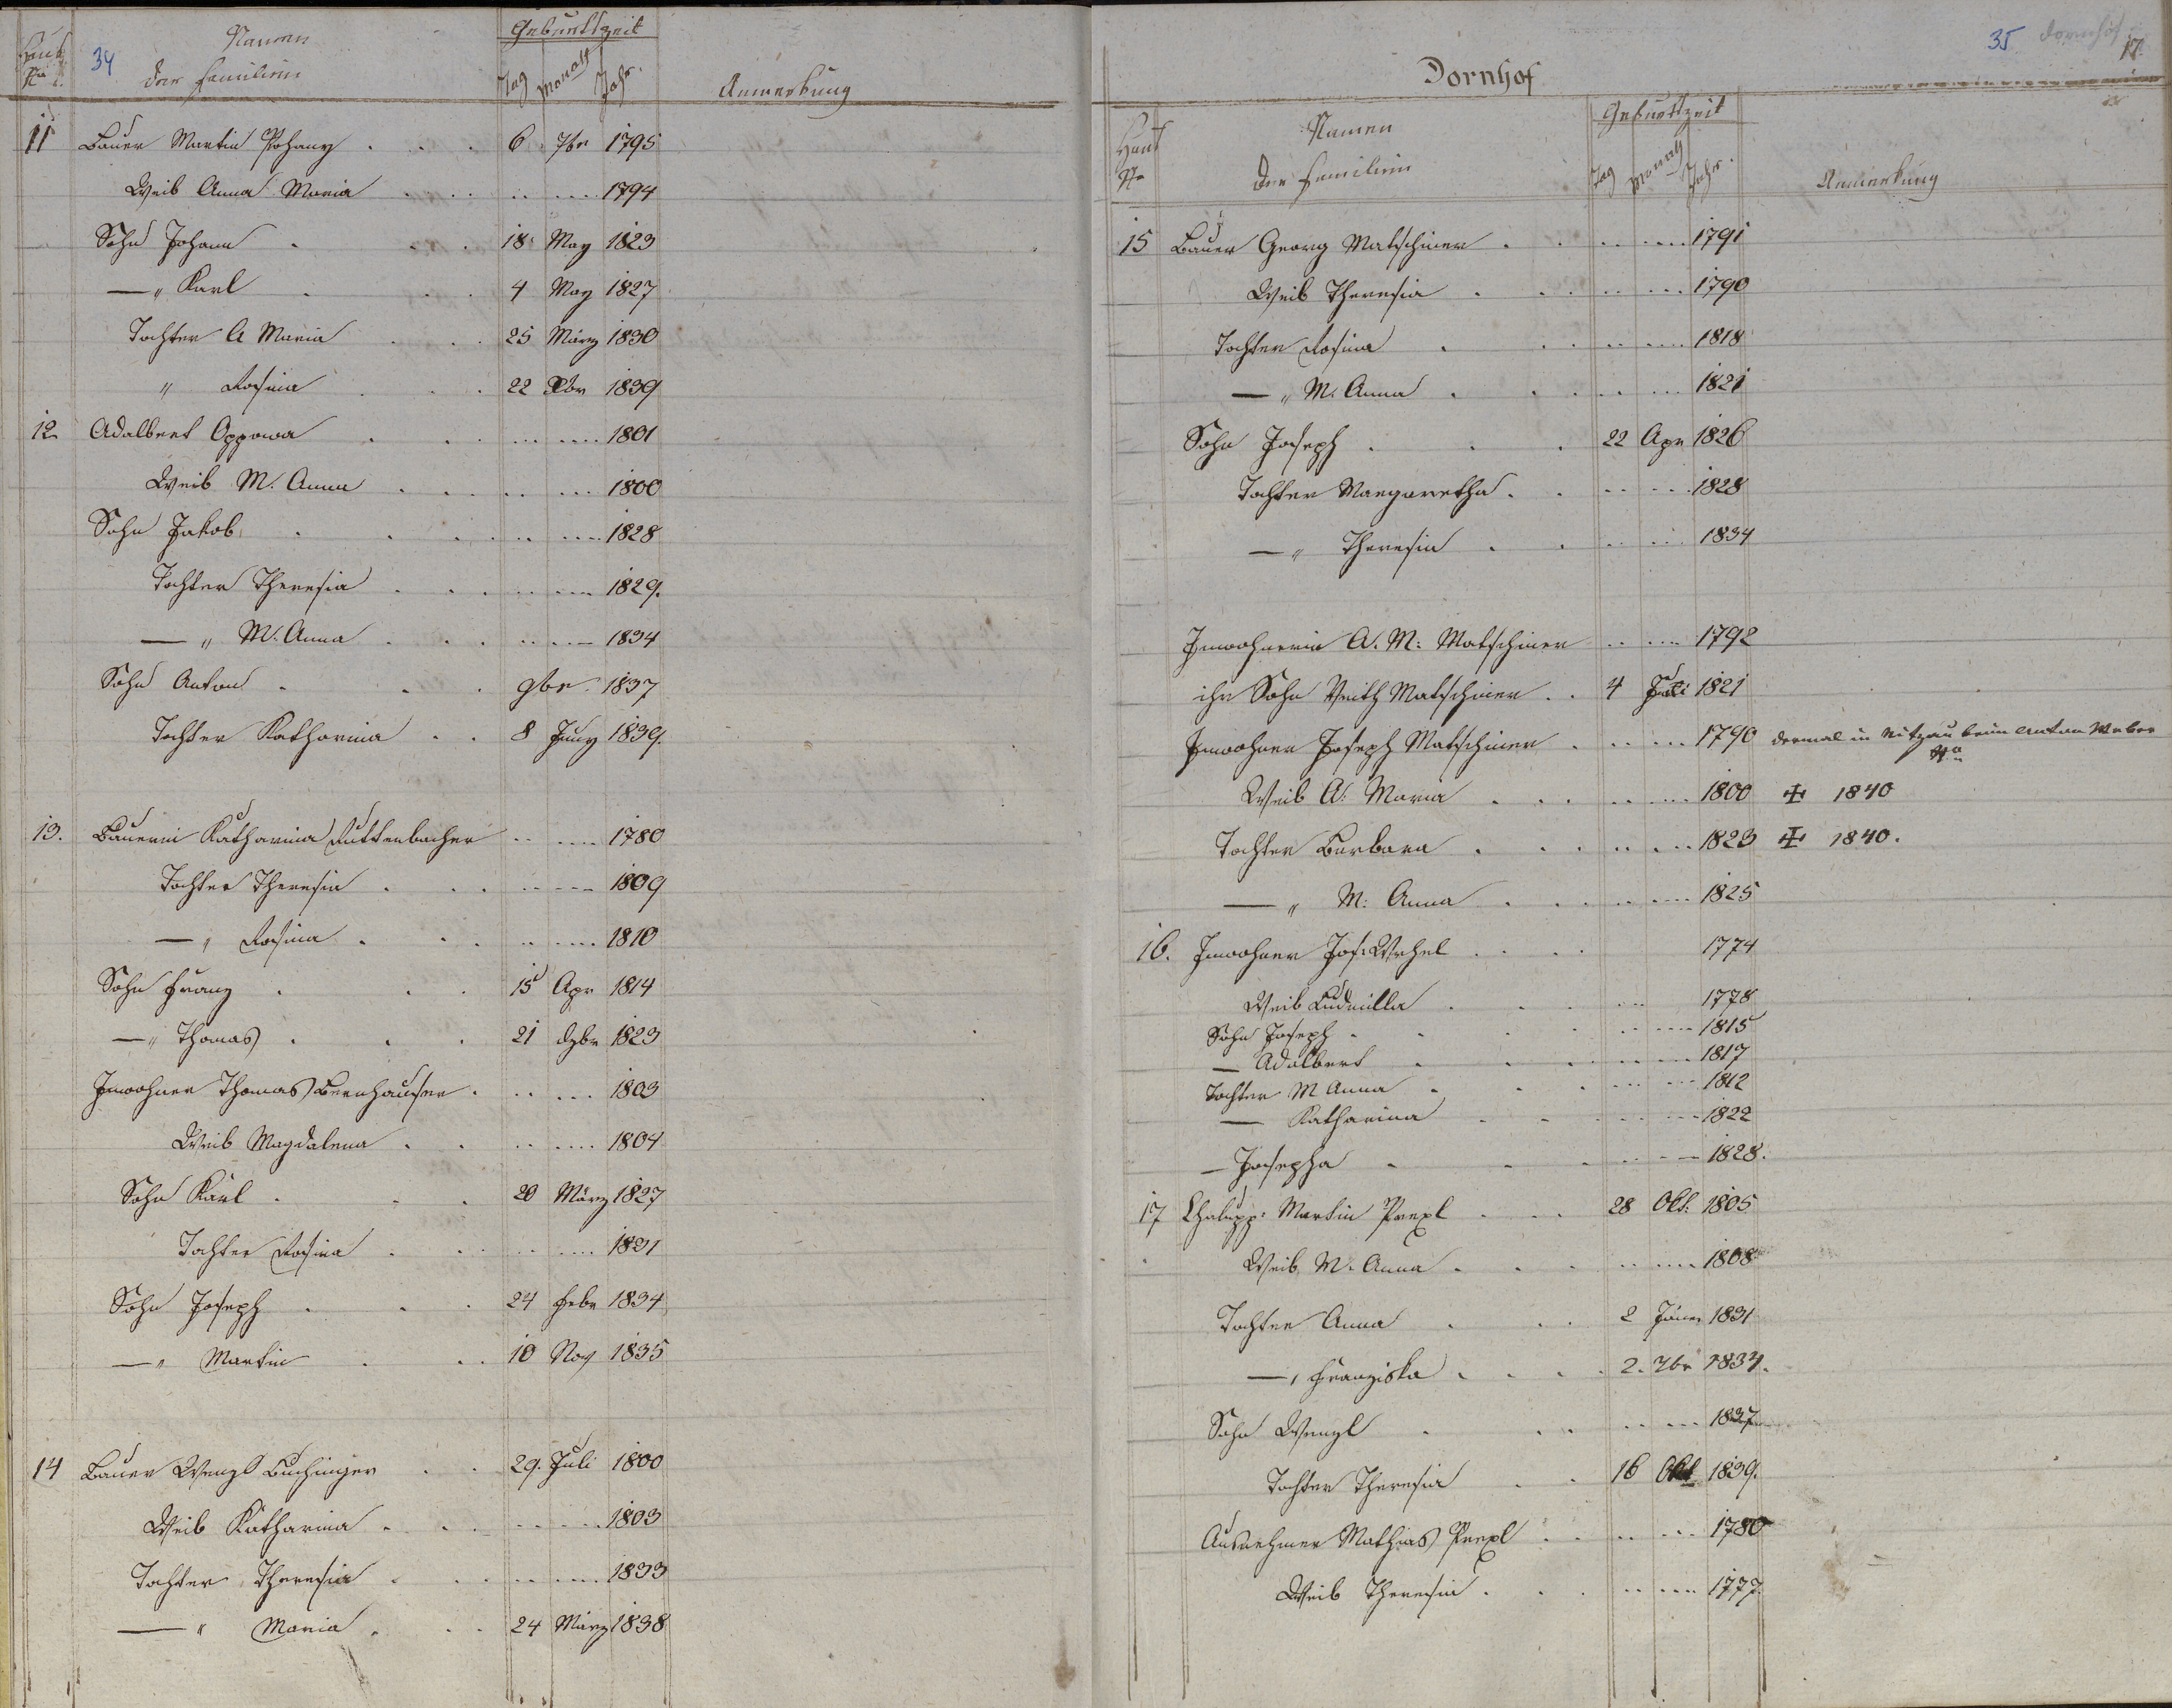 34
Haus No
Namen
der Familien
Geburtszeit
Tag Monath Jahr.
Anmerkung
11 Bauer Martin Pohany . . . 6 7br 1795
Weib Anna Maria . . . 1794
Sohn Johann . . . 18 May 1823
—„ Karl . . . 4 May 1827
Tochter A Maria . . . 25 März 1830
„ Rosina . . . 22 Xbr 1839
12 Adalbert Oppowa . . . 1801
Weib M. Anna . . . 1800
Sohn Jakob . . . 1828
Tochter Theresia . . . 1829.
—„ M. Anna . . . 1834
Sohn Anton . . . 9br 1837
Tochter Katharina . . 8 Juny 1839.
13. Bäuerin Katharina Ruttenbacher 1780
Tochter Theresia . . . 1809
—„ Rosina . . . 1810
Sohn Franz . . . 15 Apr 1814
—„ Thomas . . . 21 dzbr 1823
Inwohner Thomas Bernhauser . 1803
Weib Magdalena . . 1804
Sohn Karl . . . 20 März 1827
Tochter Rosina . . . 1831
Sohn Joseph . . . 24 Febr 1834
—„ Martin . . . 10 Nov 1835
14 Bauer Wenzl Buchinger . . 29. Juli 1800
Weib Katharina . . . 1803
Tochter Theresia . . . 1833
—„ Maria . . . 24 März 1838
35. Dornhof
17.
Dornhof
Haus No
Namen
der Familien
Geburtszeit
Tag Monath Jahr.
Anmerkung
15 Bauer Georg Matschiner . . . 1791
Weib Theresia . . . 1790
Tochter Rosina . . . 1818
—„ M. Anna . . . 1821
Sohn Joseph . . . 22 Apr 1826
Tochter Margaretha . . 1828
—„ Theresia . . . 1834
Inwohnerin A. M: Matschiner 1792
ihr Sohn Veith Matschiner . . 4 Juli 1821
Inwohner Joseph Matschiner . 1790 dermal in beim Anton Weber
No
Weib A: Maria . . . 1800 ✠ 1840
Tochter Barbara . . . 1823 ✠ 1840.
—„ M: Anna . . . 1825
16. Inwohner Jos: . . . 1774
Weib Ludmilla . . . 1778
Sohn Joseph . . . 1815
— Adalbert . . . 1817
Tochter M Anna . . . 1812
— Katharina . . . 1822
— Josepha . . . 1828.
17 Chalupp: Martin Prexl . . . 28 Okt: 1805
Weib M. Anna . . . 1808
Tochter Anna . . . 2 Jäner 1831
—„ Franziska . . . 2. 7br 1834.
Sohn Wenzl . . . 1837
Tochter Theresia . . 16 Okt 1839.
Ausnehmer Mathias Prexl . . 1780
Weib Theresia . . . 1777.